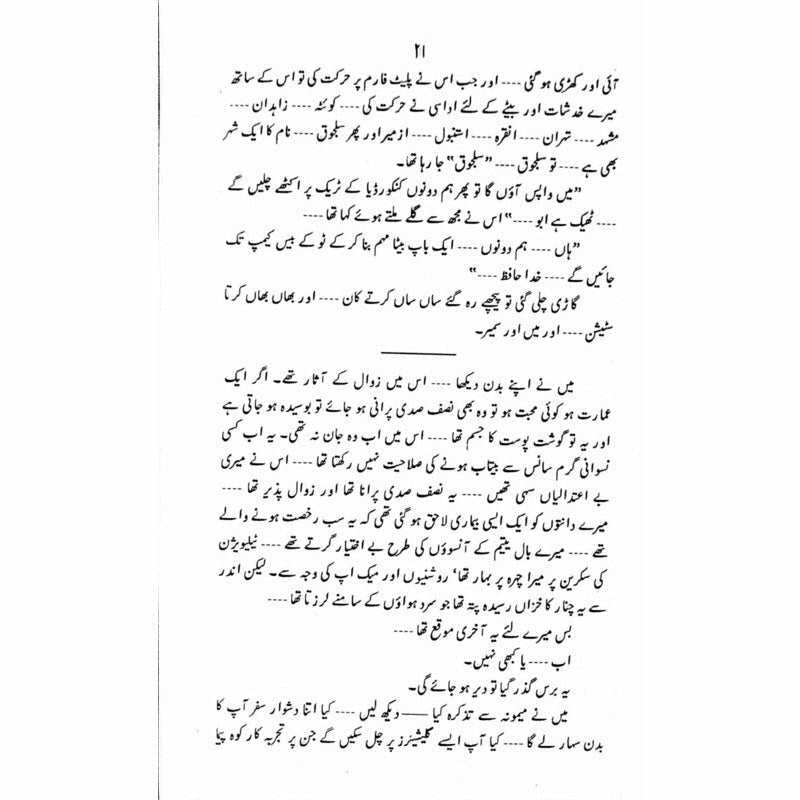 ۲۱
آئی اور کھڑی ہو گئی ---- اور جب اس نے پلیٹ فارم پر حرکت کی تو اس کے ساتھ
میرے خدشات اور بیٹے کے لئے اداسی نے حرکت کی ---- کوئٹہ ---- زاہدان ----
مشہد ---- تہران ---- انقرہ ---- استنبول ---- ازمیر اور پھر سلجوق ---- نام کا ایک شہر
بھی ہے ---- تو سلجوق ---- ”سلجوق“ جا رہا تھا۔
”میں واپس آؤں گا تو پھر ہم دونوں کنکورڈیا کے ٹریک پر اکٹھے چلیں گے
---- ٹھیک ہے ابو ----“ اس نے مجھ سے گلے ملتے ہوئے کہا تھا ----
”ہاں ---- ہم دونوں ---- ایک باپ بیٹا مہم بنا کر کے ٹو کے بیس کیمپ تک
جائیں گے ---- خدا حافظ ----“
گاڑی چلی گئی تو پیچھے رہ گئے ساں ساں کرتے کان ---- اور بھاں بھاں کرتا
سٹیشن ---- اور میں اور سمیر۔
میں نے اپنے بدن دیکھا ---- اس میں زوال کے آثار تھے۔ اگر ایک
عمارت ہو کوئی محبت ہو تو وہ بھی نصف صدی پرانی ہو جائے تو بوسیدہ ہو جاتی ہے
اور یہ تو گوشت پوست کا جسم تھا ---- اس میں اب وہ جان نہ تھی۔ یہ اب کسی
نسوانی گرم سانس سے بیتاب ہونے کی صلاحیت نہیں رکھتا تھا ---- اس نے میری
بے اعتدالیاں سہی تھیں ---- یہ نصف صدی پرانا تھا اور زوال پذیر تھا ----
میرے دانتوں کو ایک ایسی بیماری لاحق ہو گئی تھی کہ یہ سب رخصت ہونے والے
تھے ---- میرے بال یتیم کے آنسوؤں کی طرح بے اختیار گرتے تھے ---- ٹیلیویژن
کی سکرین پر میرا چہرہ پر بہار تھا‘ روشنیوں اور میک اپ کی وجہ سے۔ لیکن اندر
سے یہ چنار کا خزاں رسیدہ پتہ تھا جو سرد ہواؤں کے سامنے لرزتا تھا ----
بس میرے لئے یہ آخری موقع تھا ----
اب ---- یا کبھی نہیں۔
یہ برس گذر گیا تو دیر ہو جائے گی۔
میں نے میمونہ سے تذکرہ کیا —— دیکھ لیں ---- کیا اتنا دشوار سفر آپ کا
بدن سہار لے گا ---- کیا آپ ایسے گلیشیئرز پر چل سکیں گے جن پر تجربہ کار کوہ پیا